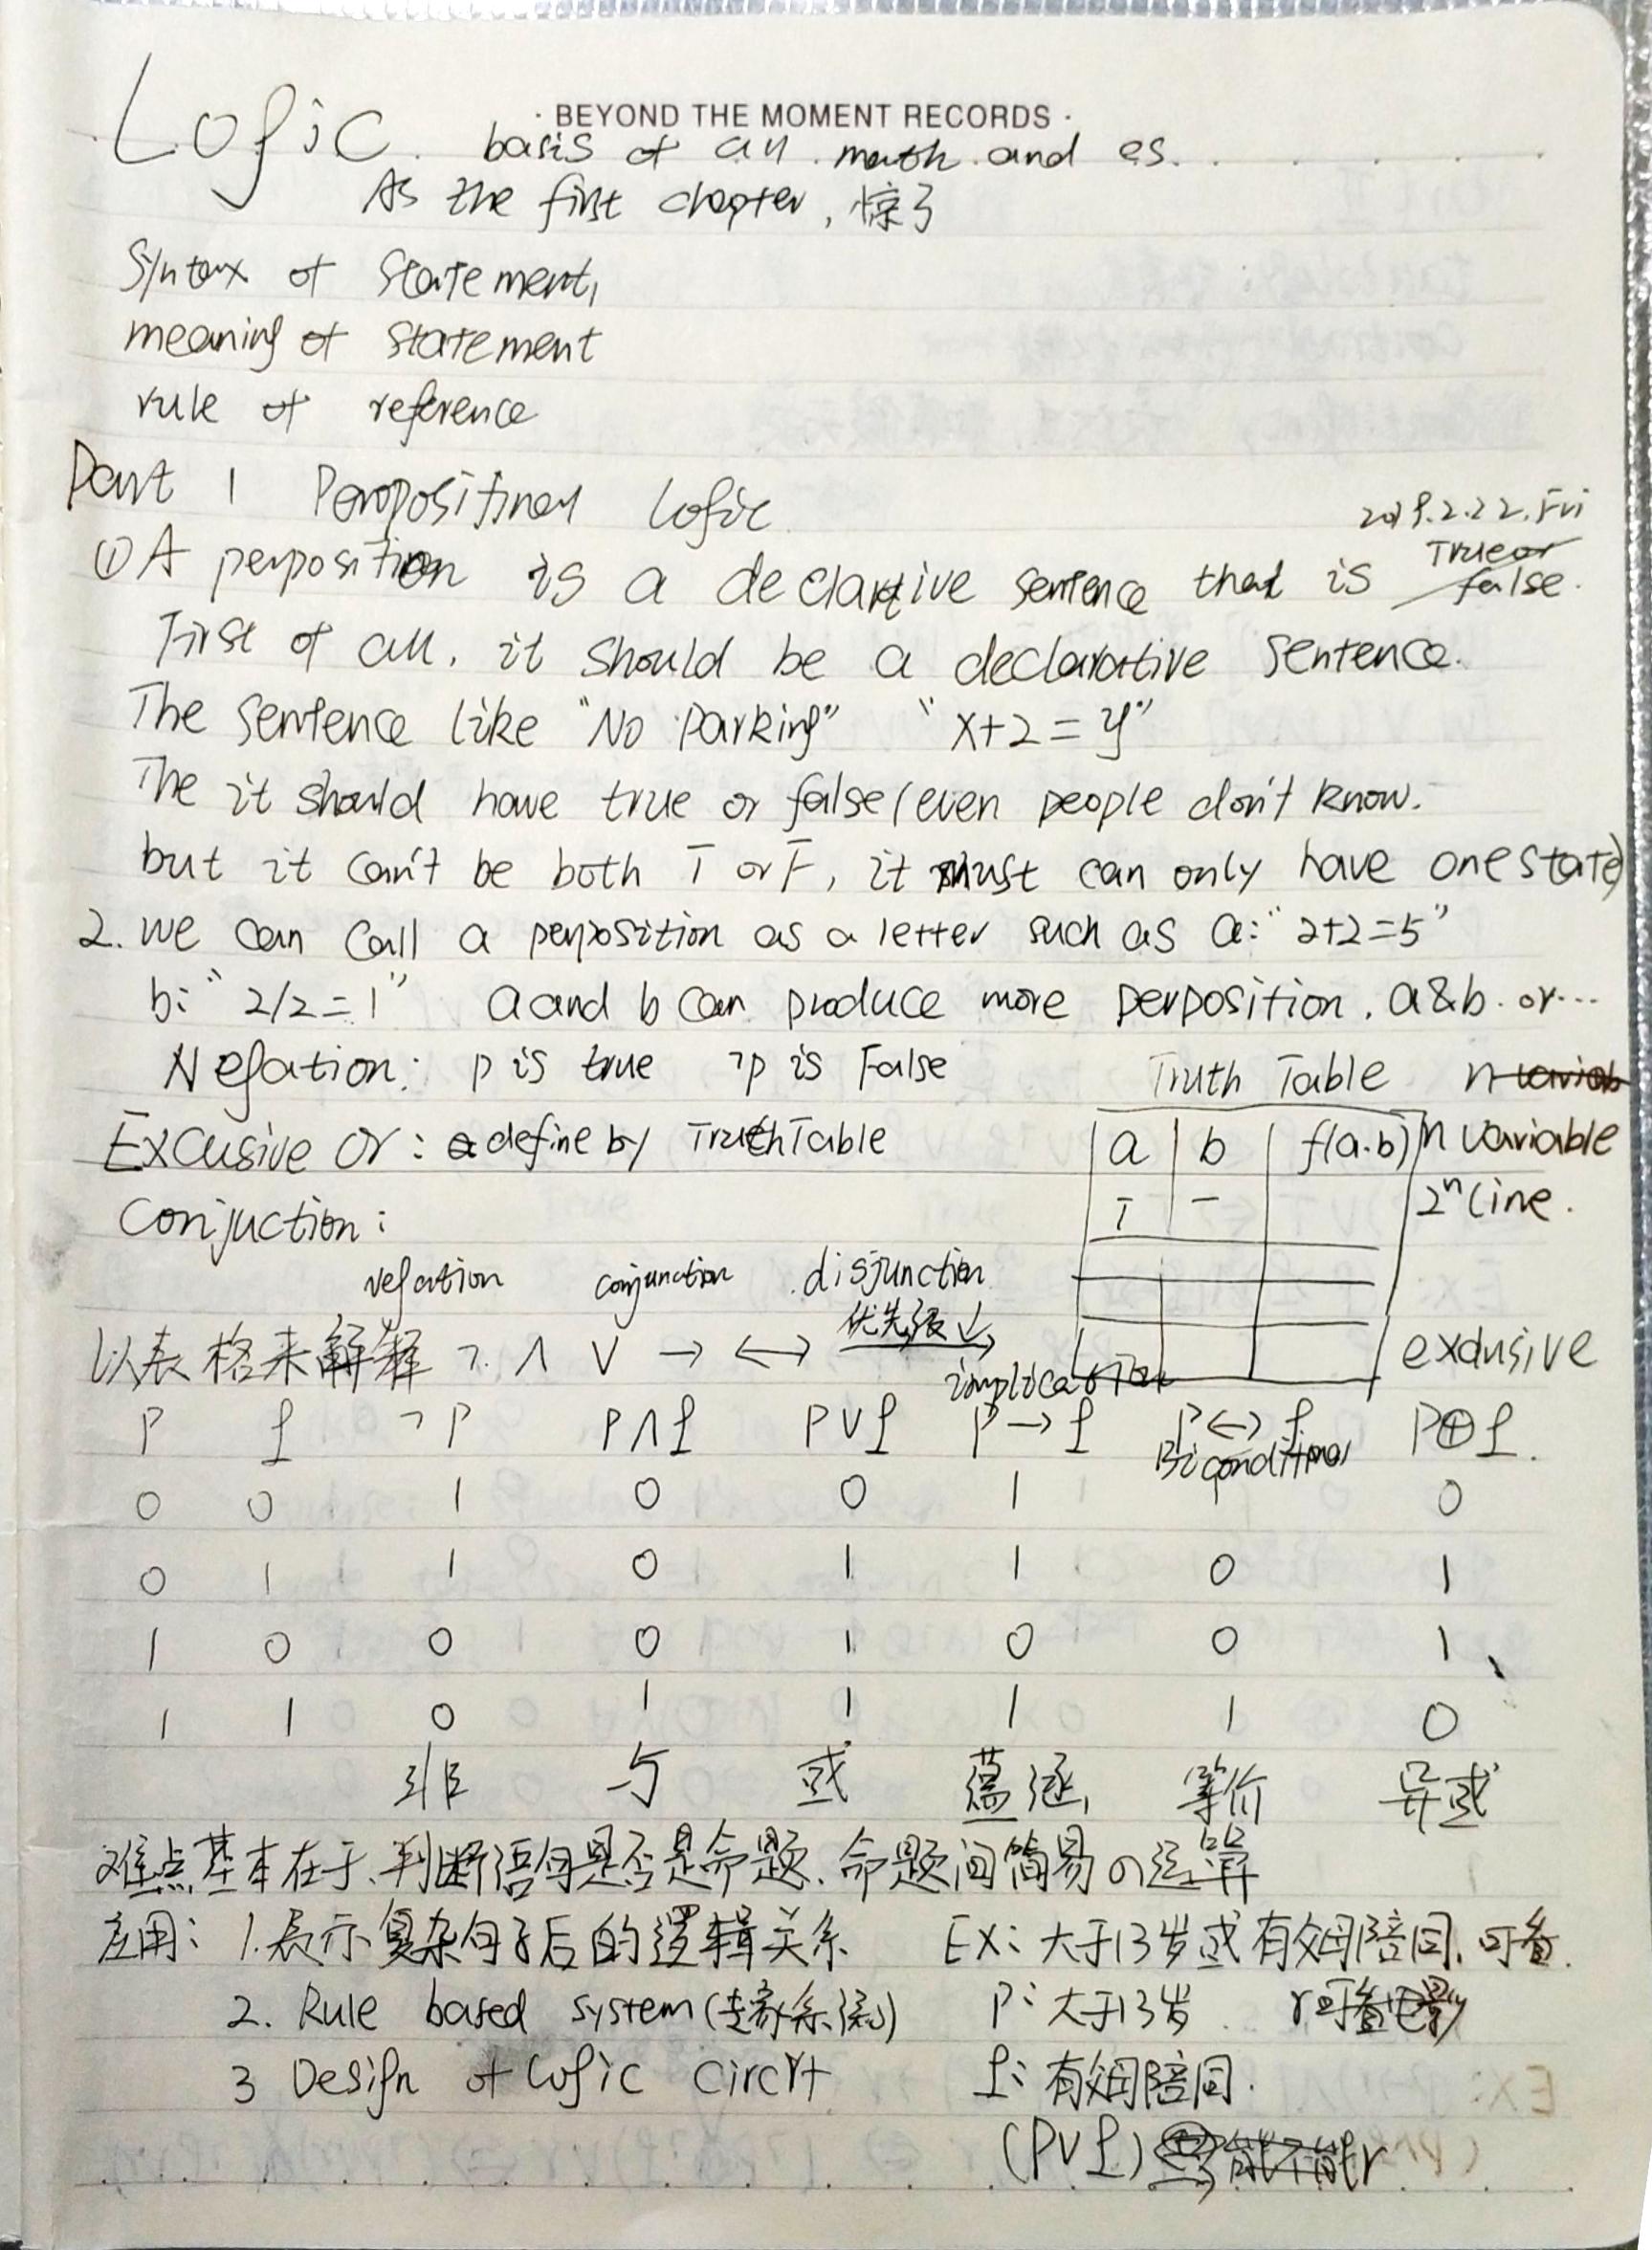 · BEYOND THE MOMENT RECORDS ·
Logic. basis of all math and cs.
As the first chapter, 惊了
Syntax of statement,
meaning of statement
rule of reference
Part 1 Perpositinal Logic
2019.2.22.Fri
① A perposition is a declartive sentence that is True or false.
First of all, it should be a declarative sentence.
The sentence like "No parking" "x+2=y"
The it should have true or false (even people don't know.
but it can't be both T or F, it must can only have one state)
2. we can call a perposition as a letter such as a: "2+2=5"
b: "2/2=1" a and b can produce more perposition. a&b. or...
Negation: p is true ¬p is False Truth Table
Excusive or: define by Truth Table a b f(a.b) n variable
Conjuction: T 2ⁿ line.
negation conjunction disjunction
优先级
以表格来解释 ¬. ∧ ∨ → ↔ implication exclusive
P q ¬P P∧q P∨q P→q P↔q P⊕q.
Biconditinal
0 0 1 0 0 1 1 0
0 1 1 0 1 1 0 1
1 0 0 0 1 0 0 1
1 1 0 1 1 1 1 0
非 与 或 蕴涵 等价 异或
难点基本在于、判断语句是否是命题、命题间简易の运算
应用: 1.表示复杂句子后的逻辑关系 EX: 大于13岁或有父母陪同、可看.
2. Rule based system (专家系统) P: 大于13岁 r可看电影
3 Design of Logic Circit q: 有父母陪同.
(P∨q) r